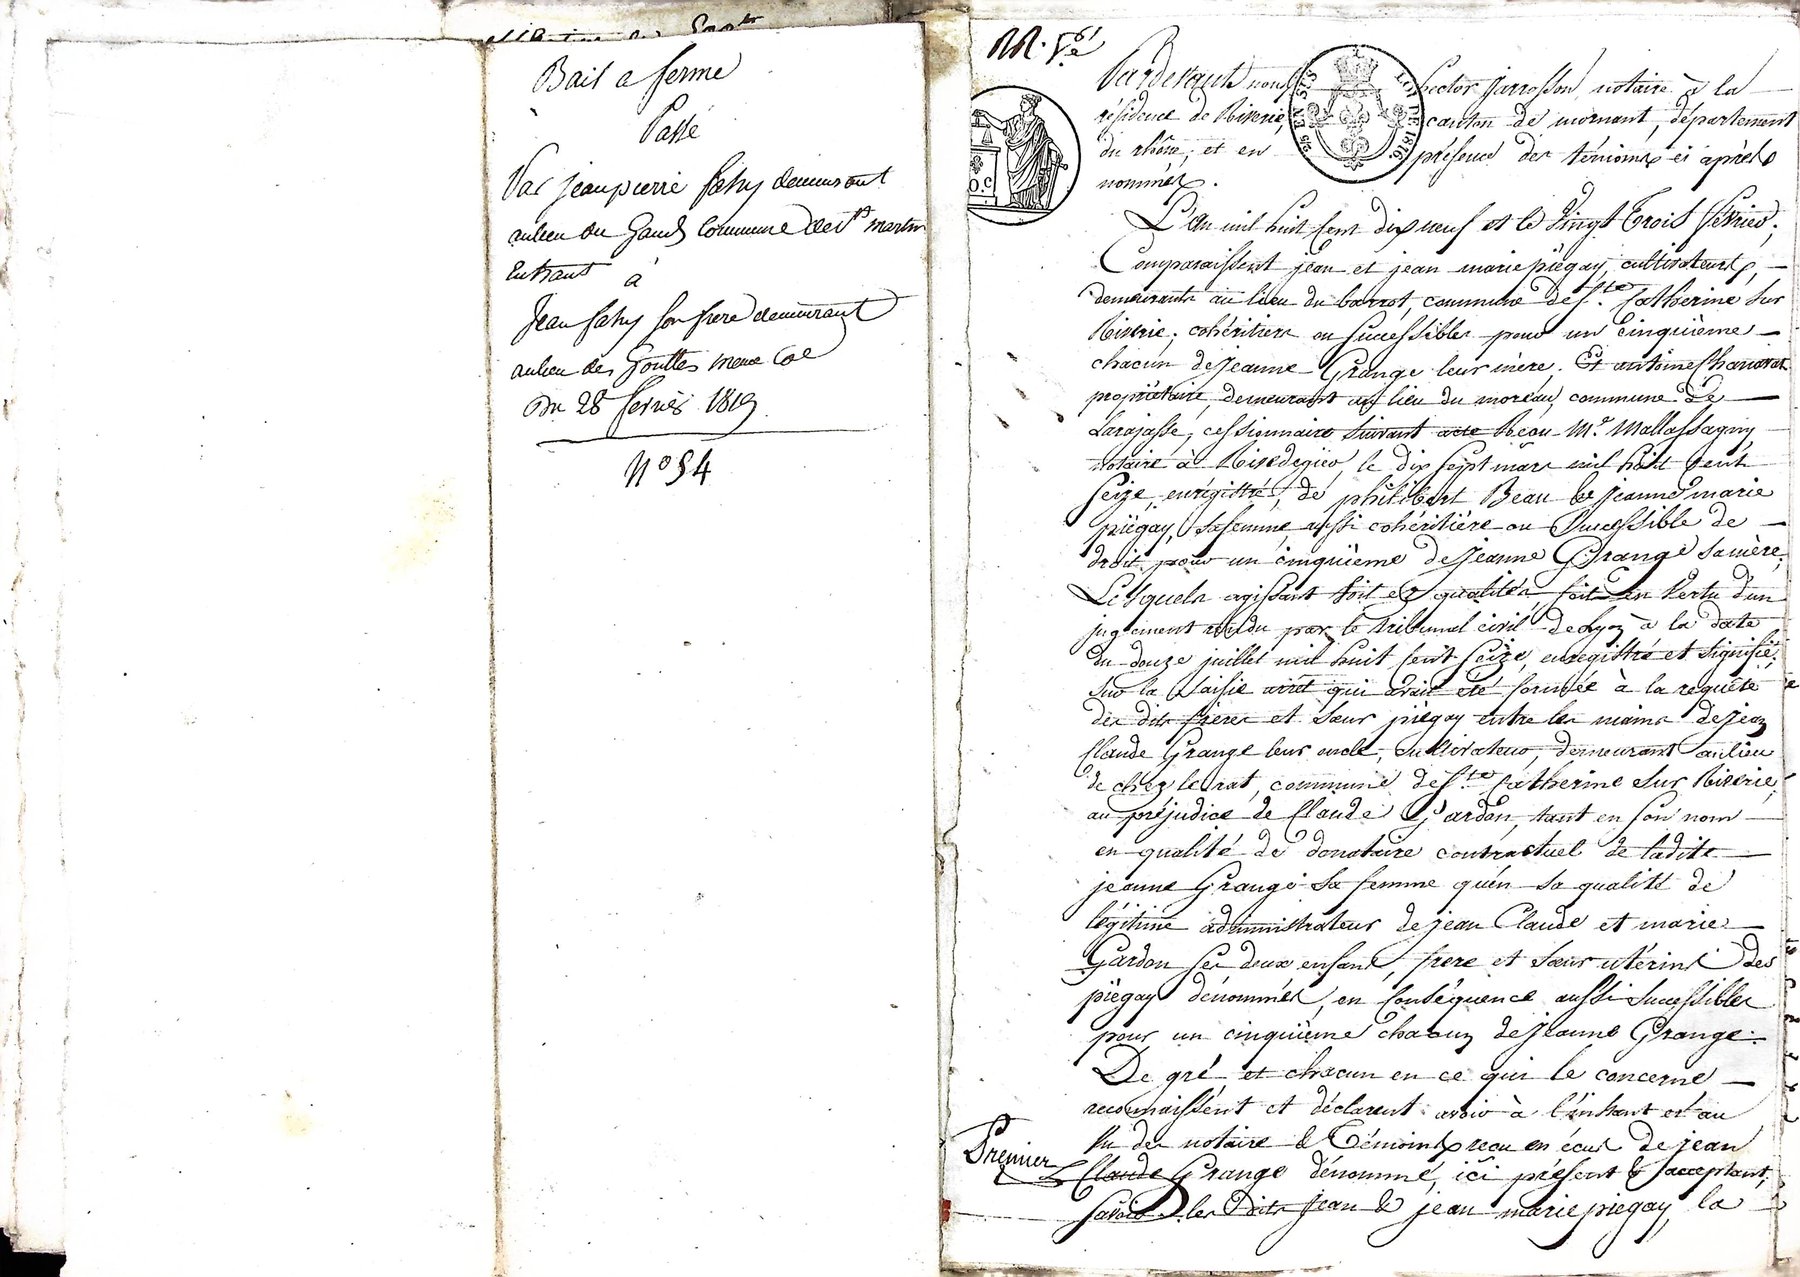 Bail a ferme
Passé
Par jean pierre fahy demeurant
au lieu du Gand Commune de St martin
Entrant
à
Jean fahy son frere demeurant
au lieu des Gouttes meme Cne
Du 28 fevrier 1819
N° 54
Pardevant nous hector Jarrosson, notaire à la
résidence de Riverie, canton de mornant, département
du rhône; et en présence des témoins ci après
nommés.
25 EN SUS
LOI DE 1816
L'an mil huit cent dix neuf et le Vingt Trois février;
Comparaissent jean et jean marie piégay, cultivateurs,
demeurants au lieu du barrot, commune de Ste Catherine sur
Riverie, cohéritiers ou successibles pour un cinquième
chacun de Jeanne Grange leur mère. Et antoine
propriétaire, demeurant au lieu du moreau, commune de
Larajasse, cessionnaire suivant acte Reçu Me Mallassagny
notaire à Rivedegier, le dix sept mars mil huit cent
seize, enrégistré, de philibert Beau & Jeanne marie
piégay, sa femme, aussi cohéritière ou Successible de
droit pour un cinquième de Jeanne Grange sa mère;
Lesquels agissant soit es qualités, soit en Vertu d'un
jugement rendu par le tribunal civil de Lyon à la date
du douze juillet mil huit cent seize, enregistré et signifié,
sur la saisie arrêt qui avait été formée à la requête
des dits frères et sœur piégay entre les mains de Jean
Claude Grange leur oncle, cultivateur, demeurant au lieu
de chez le rat, commune de Ste Catherine sur Riverie,
au préjudice de Claude Gardon, tant en son nom
en qualité de donataire contractuel de ladite
jeanne Grange sa femme qu'en sa qualité de
légitime administrateur de jean Claude et marie
Gardon ses deux enfans, frere et sœur utérins des
piégay dénommés, en conséquence aussi successibles
pour un cinquième chacun de Jeanne Grange.
De gré et chacun en ce qui le concerne
reconnaissent et déclarent avoir à l'instant et au
Vu des notaire & Témoins reçu en écus de jean
Premier
Claude Grange dénommé, ici présent & acceptant,
savoir: les dits Jean & jean marie piégay, la